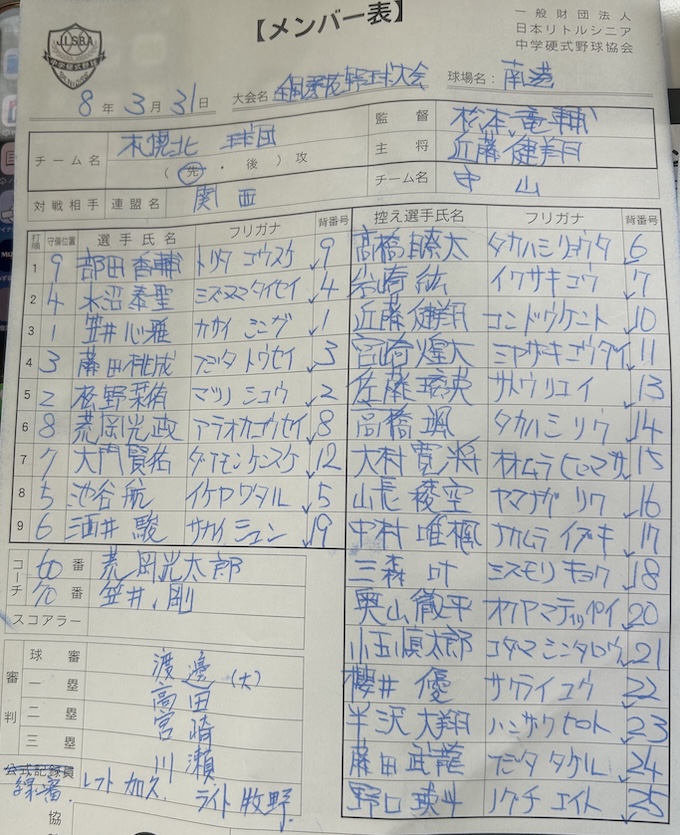 JLSBA
中学硬式野球
【メンバー表】
一般財団法人
日本リトルシニア
中学硬式野球協会
8年3月31日 大会名 野球大会 球場名：南港
チーム名 札幌北 球団 監督 松本 竜輔
（先・後）攻 主将 近藤健翔
対戦相手 連盟名 関西 チーム名 中山
打順 守備位置 選手氏名 フリガナ 背番号
1 9 部田香輔 トリタ コウスケ 9
2 4 水沼泰聖 ミズヌマタイセイ 4
3 1 笠井心雅 カサイ シンガ 1
4 3 藤田桃成 フジタ トウセイ 3
5 2 松野栞侑 マツノ シユウ 2
6 8 荒岡光政 アラオカコウセイ 8
7 7 大門賢佑 ダイモンケンスケ 12
8 5 池谷航 イケヤワタル 5
9 6 酒井駿 サカイ シュン 19
控え選手氏名 フリガナ 背番号
高橋瞭太 タカハシリョウタ 6
岩崎紘 イワサキコウ 7
近藤健翔 コンドウケント 10
宮崎煌大 ミヤザキコウダイ 11
佐藤琉英 サトウリユイ 13
高橋颯 タカハシリウ 14
大村寛将 オオムラヒロマサ 15
山長稜空 ヤマナガリク 16
中村唯楓 ナカムライブキ 17
三森叶 ミスモリキョウ 18
奥山徹平 オクヤマテッペイ 20
小玉慎太郎 コダマシンタロウ 21
櫻井優 サクライユウ 22
半沢大翔 ハンザワヒロト 23
藤田武龍 フジタタケル 24
野口瑛斗 ノグチエイト 25
コーチ 60番 荒岡光太郎
70番 笠井剛
スコアラー
審判 球審 渡邊(大)
一塁 高田
二塁 宮崎
三塁 川瀬
公式記録員
線審. レフト 加久. ライト 牧野.
協